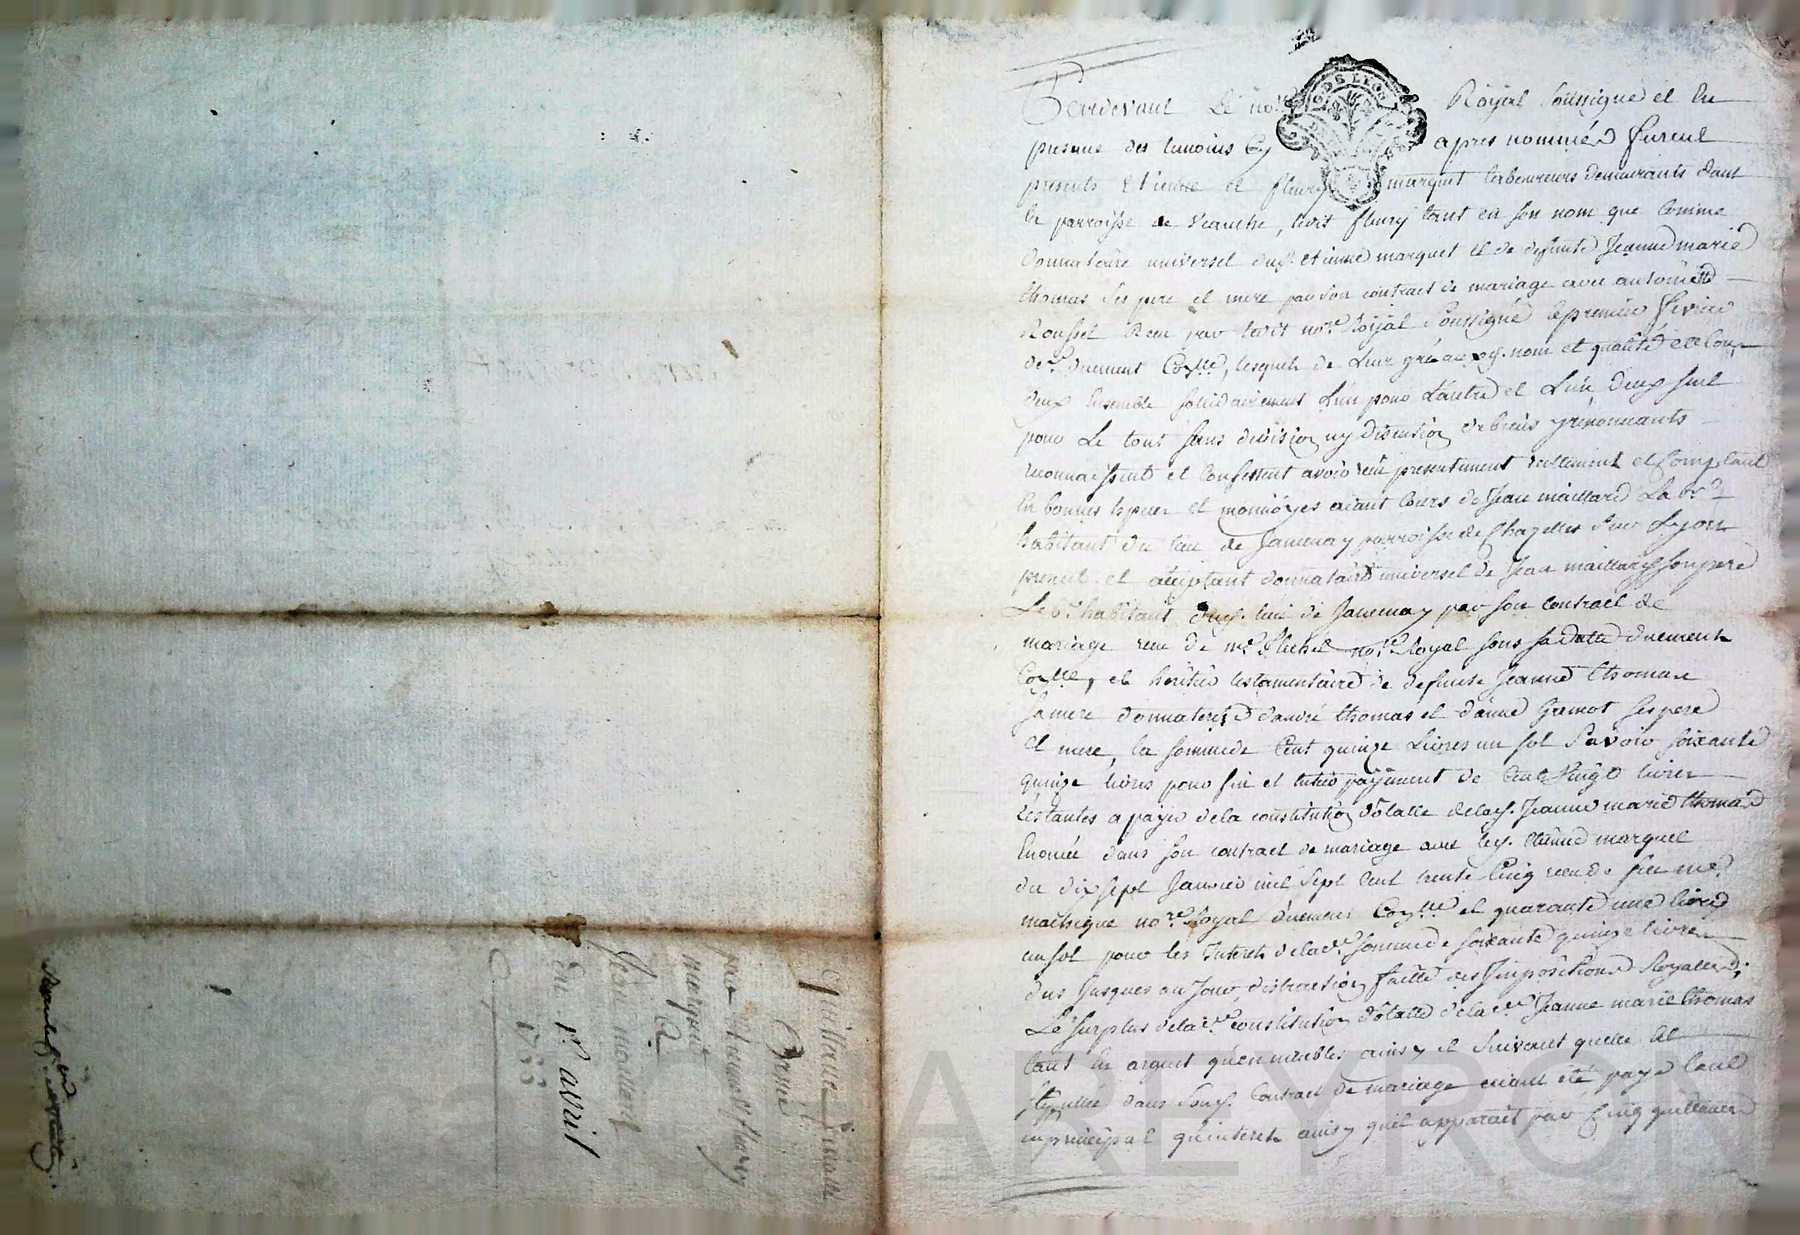 Pardevant Le no.re Royal Soussigné et En
presence des temoins Cy apres nommés furent
presents Etienne et fleury marquet laboureurs demeurants dans
la parroisse de , ledit fleury tant en son nom que Comme
Donnataire universel dud. etienne marquet et de defunte Jeanne marie
thomas Ses pere et mere par son contract de mariage avec antoinette
Roussel Receu par ledit no.re Royal Soussigné le premier fevrier
d.er duement Con.llé, lesquels de Leur gré aux d. nom et qualité et tous
deux Ensemble solidairement L'un pour L'autre et L'un d'eux seul
pour Le tout sans division ny discution de biens y renonceants
reconnaissent et Confessent avoir receu presentement reellement et Comptant
En bonnes Especes et monnoyes aiant Cours de Jean maillard Lab.r
habitant du lieu de Jancenay parroisse de Chazelles sur Lyon
present et aceptant donnataire universel de Jean maillard son pere
Lab.r habitant dud. lieu de Jancenay par son Contract de
mariage receu de m.e no.re Royal sous sa datte duement
Con.llé, et héritier testamentaire de defunte Jeanne Thomas
Sa mere donnaterice d'andré thomas et d'anne Gremot ses pere
et mere, la somme de Cent quinze Livres un sol Savoir soixante
quinze livres pour fin et entier payement de Cent Vingt livres
Restantes a payer de la constitution dotalle de la d. Jeanne marie thomas
Enoncée dans son contract de mariage avec led. Etienne marquet
du dix sept Janvier mil Sept Cent trente Cinq receu de feu me
no.re Royal duement Con.llé et quarante une livres
un sol pour les Interets de lad.e Somme de soixante quinze livres
dus Jusques au Jour, distraction faitte des Impositions Royalles;
Le surplus de la d.e constitution dotalle de la d.e Jeanne marie thomas
tant En argent qu'en meubles ainsy et Suivant quelle Est
stipullée dans sond. Contract de mariage aiant été payé tant
en principal qu'interets ainsy quil apparait par Cinq quittances
Quittance finale
passée
par etienne et fleury
marquet
a
Jean maillard
Du 1er avril
1788